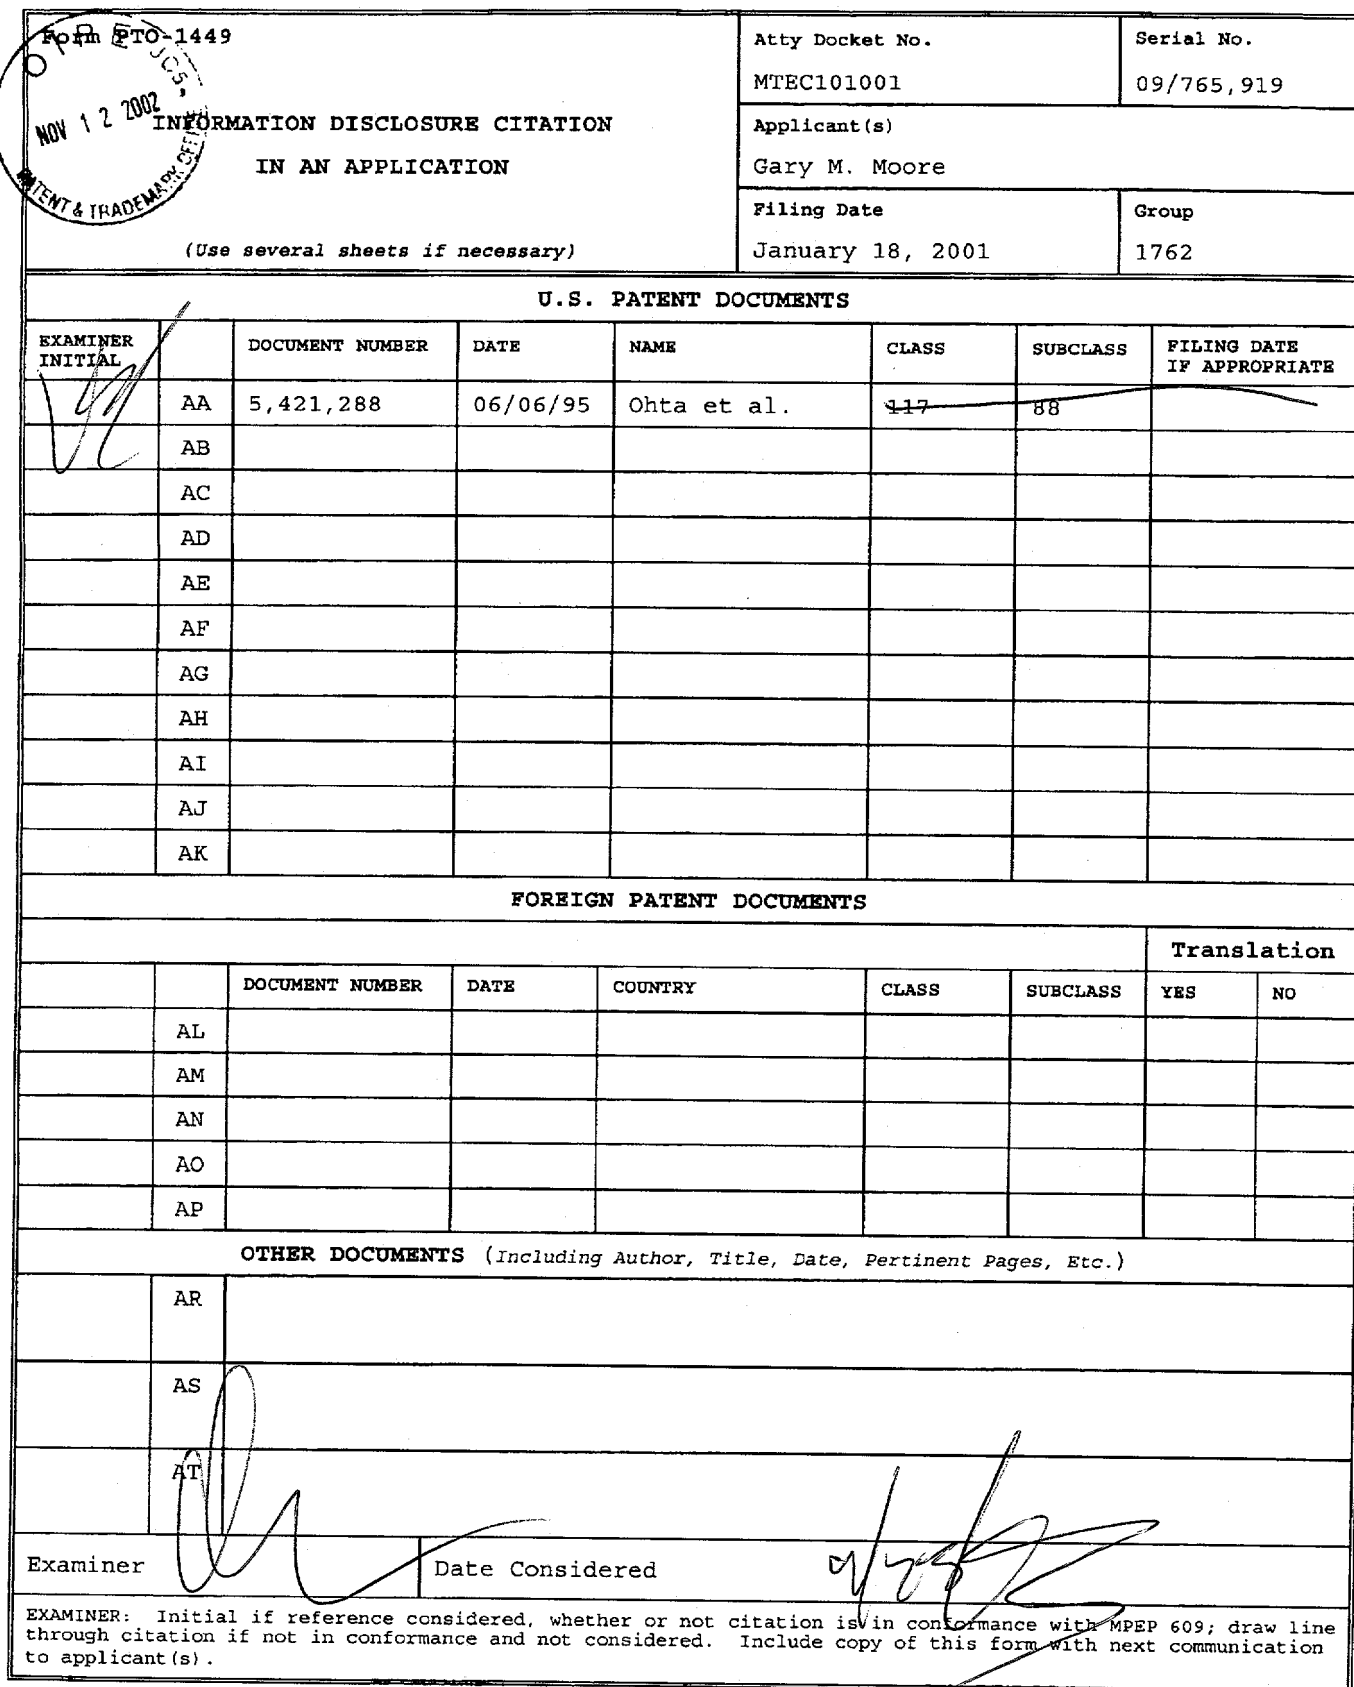 Form PTO-1449
OIPE JCS.
NOV 12 2002
PATENT & TRADEMARK OFFICE
INFORMATION DISCLOSURE CITATION
IN AN APPLICATION
(Use several sheets if necessary)
Atty Docket No.
MTEC101001
Serial No.
09/765,919
Applicant(s)
Gary M. Moore
Filing Date
January 18, 2001
Group
1762
U.S. PATENT DOCUMENTS
EXAMINER INITIAL DOCUMENT NUMBER DATE NAME CLASS SUBCLASS FILING DATE IF APPROPRIATE
AA 5,421,288 06/06/95 Ohta et al. 117 88
AB
AC
AD
AE
AF
AG
AH
AI
AJ
AK
FOREIGN PATENT DOCUMENTS
Translation
DOCUMENT NUMBER DATE COUNTRY CLASS SUBCLASS YES NO
AL
AM
AN
AO
AP
OTHER DOCUMENTS (Including Author, Title, Date, Pertinent Pages, Etc.)
AR
AS
AT
Examiner
Date Considered
EXAMINER: Initial if reference considered, whether or not citation is in conformance with MPEP 609; draw line
through citation if not in conformance and not considered. Include copy of this form with next communication
to applicant(s).